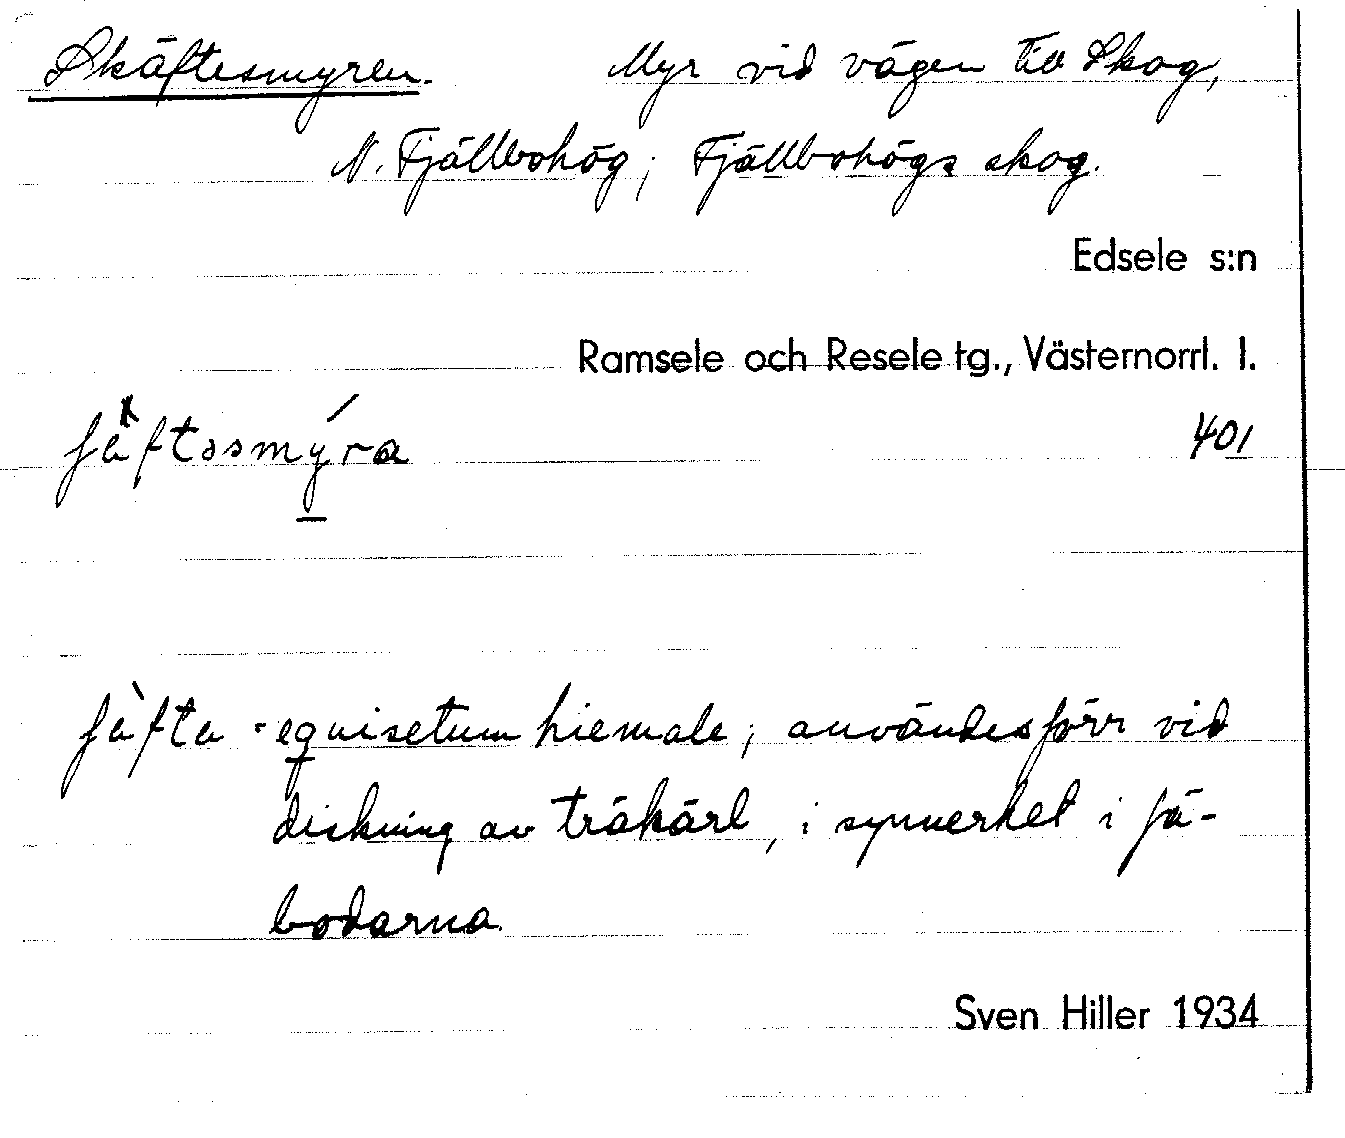 Skäftesmyren. Myr vid vägen till Skog,
N. Fjällbohög; Fjällbohögs skog.
Edsele s:n
Ramsele och Resele tg., Västernorrl. l.
ʃäftəsmýra 401
ʃäfta - equisetum hiemale; användes förr vid
diskning av träkärl, i synnerhet i fä-
bodarna.
Sven Hiller 1934